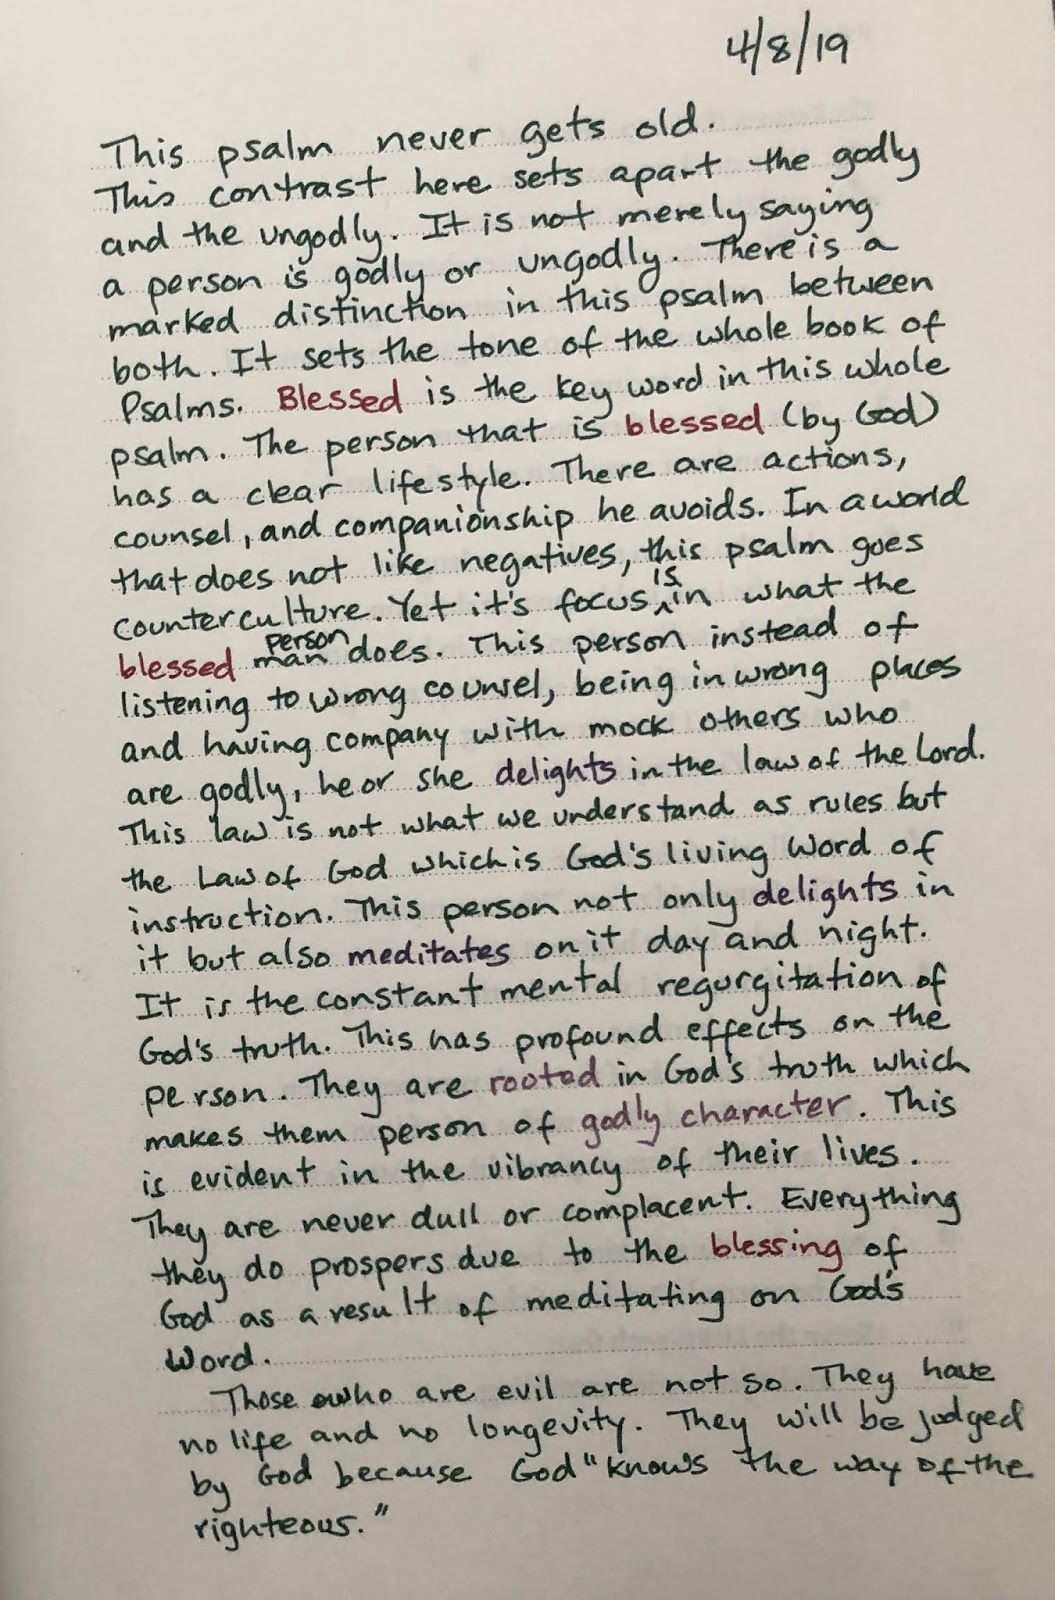 4/8/19
This psalm never gets old.
This contrast here sets apart the godly
and the ungodly. It is not merely saying
a person is godly or ungodly. There is a
marked distinction in this psalm between
both. It sets the tone of the whole book of
Psalms. Blessed is the key word in this whole
psalm. The person that is blessed (by God)
has a clear lifestyle. There are actions,
counsel, and companionship he avoids. In a world
that does not like negatives, this psalm goes
counterculture. Yet it's focus is in what the
blessed man person does. This person instead of
listening to wrong counsel, being in wrong places
and having company with mock others who
are godly, he or she delights in the law of the Lord.
This law is not what we understand as rules but
the Law of God which is God's living Word of
instruction. This person not only delights in
it but also meditates on it day and night.
It is the constant mental regurgitation of
God's truth. This has profound effects on the
person. They are rooted in God's truth which
makes them person of godly character. This
is evident in the vibrancy of their lives.
They are never dull or complacent. Everything
they do prospers due to the blessing of
God as a result of meditating on God's
Word.
Those who are evil are not so. They have
no life and no longevity. They will be judged
by God because God "knows the way of the
righteous."